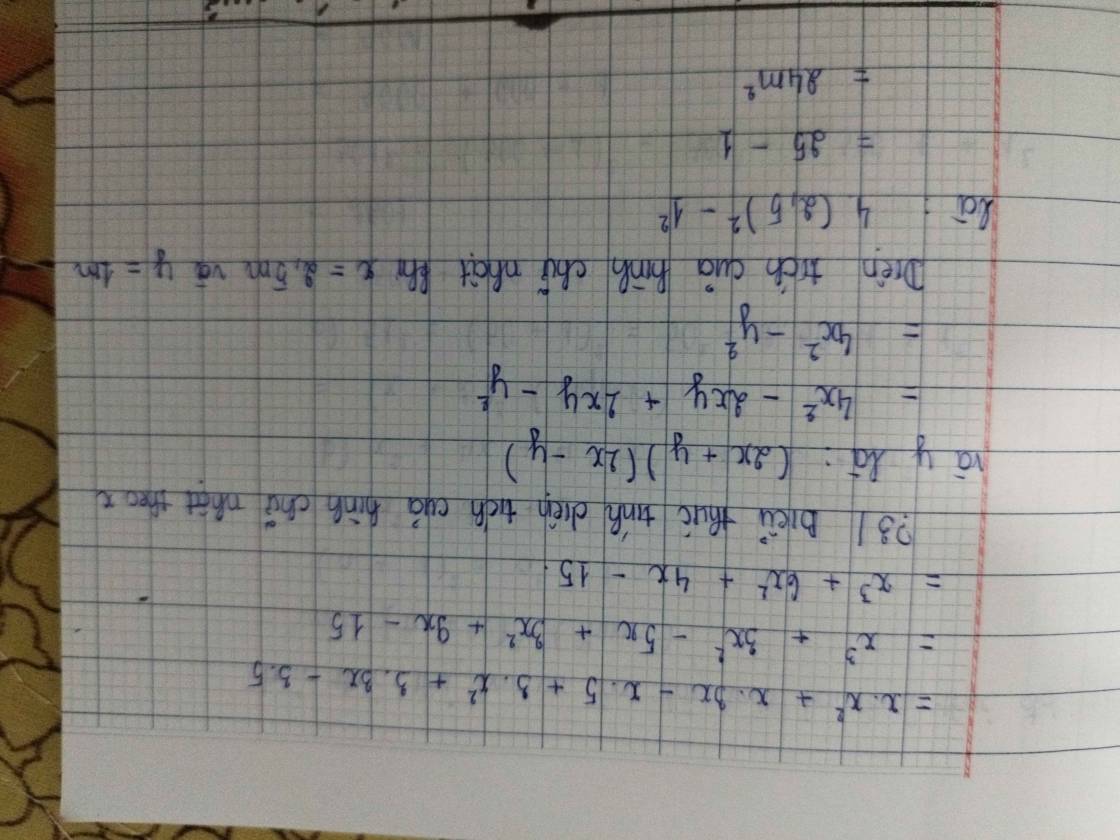 = x.x² + x.3x - x.5 + 3.x² + 3.3x - 3.5
= x³ + 3x² - 5x + 3x² + 9x - 15
= x³ + 6x² + 4x - 15
?3/ Biểu thức tính diện tích của hình chữ nhật theo x
và y là : (2x + y)(2x - y)
= 4x² - 2xy + 2xy - y²
= 4x² - y²
Diện tích của hình chữ nhật khi x = 2,5m và y = 1m
là : 4 (2,5)² - 1²
= 25 - 1
= 24m²